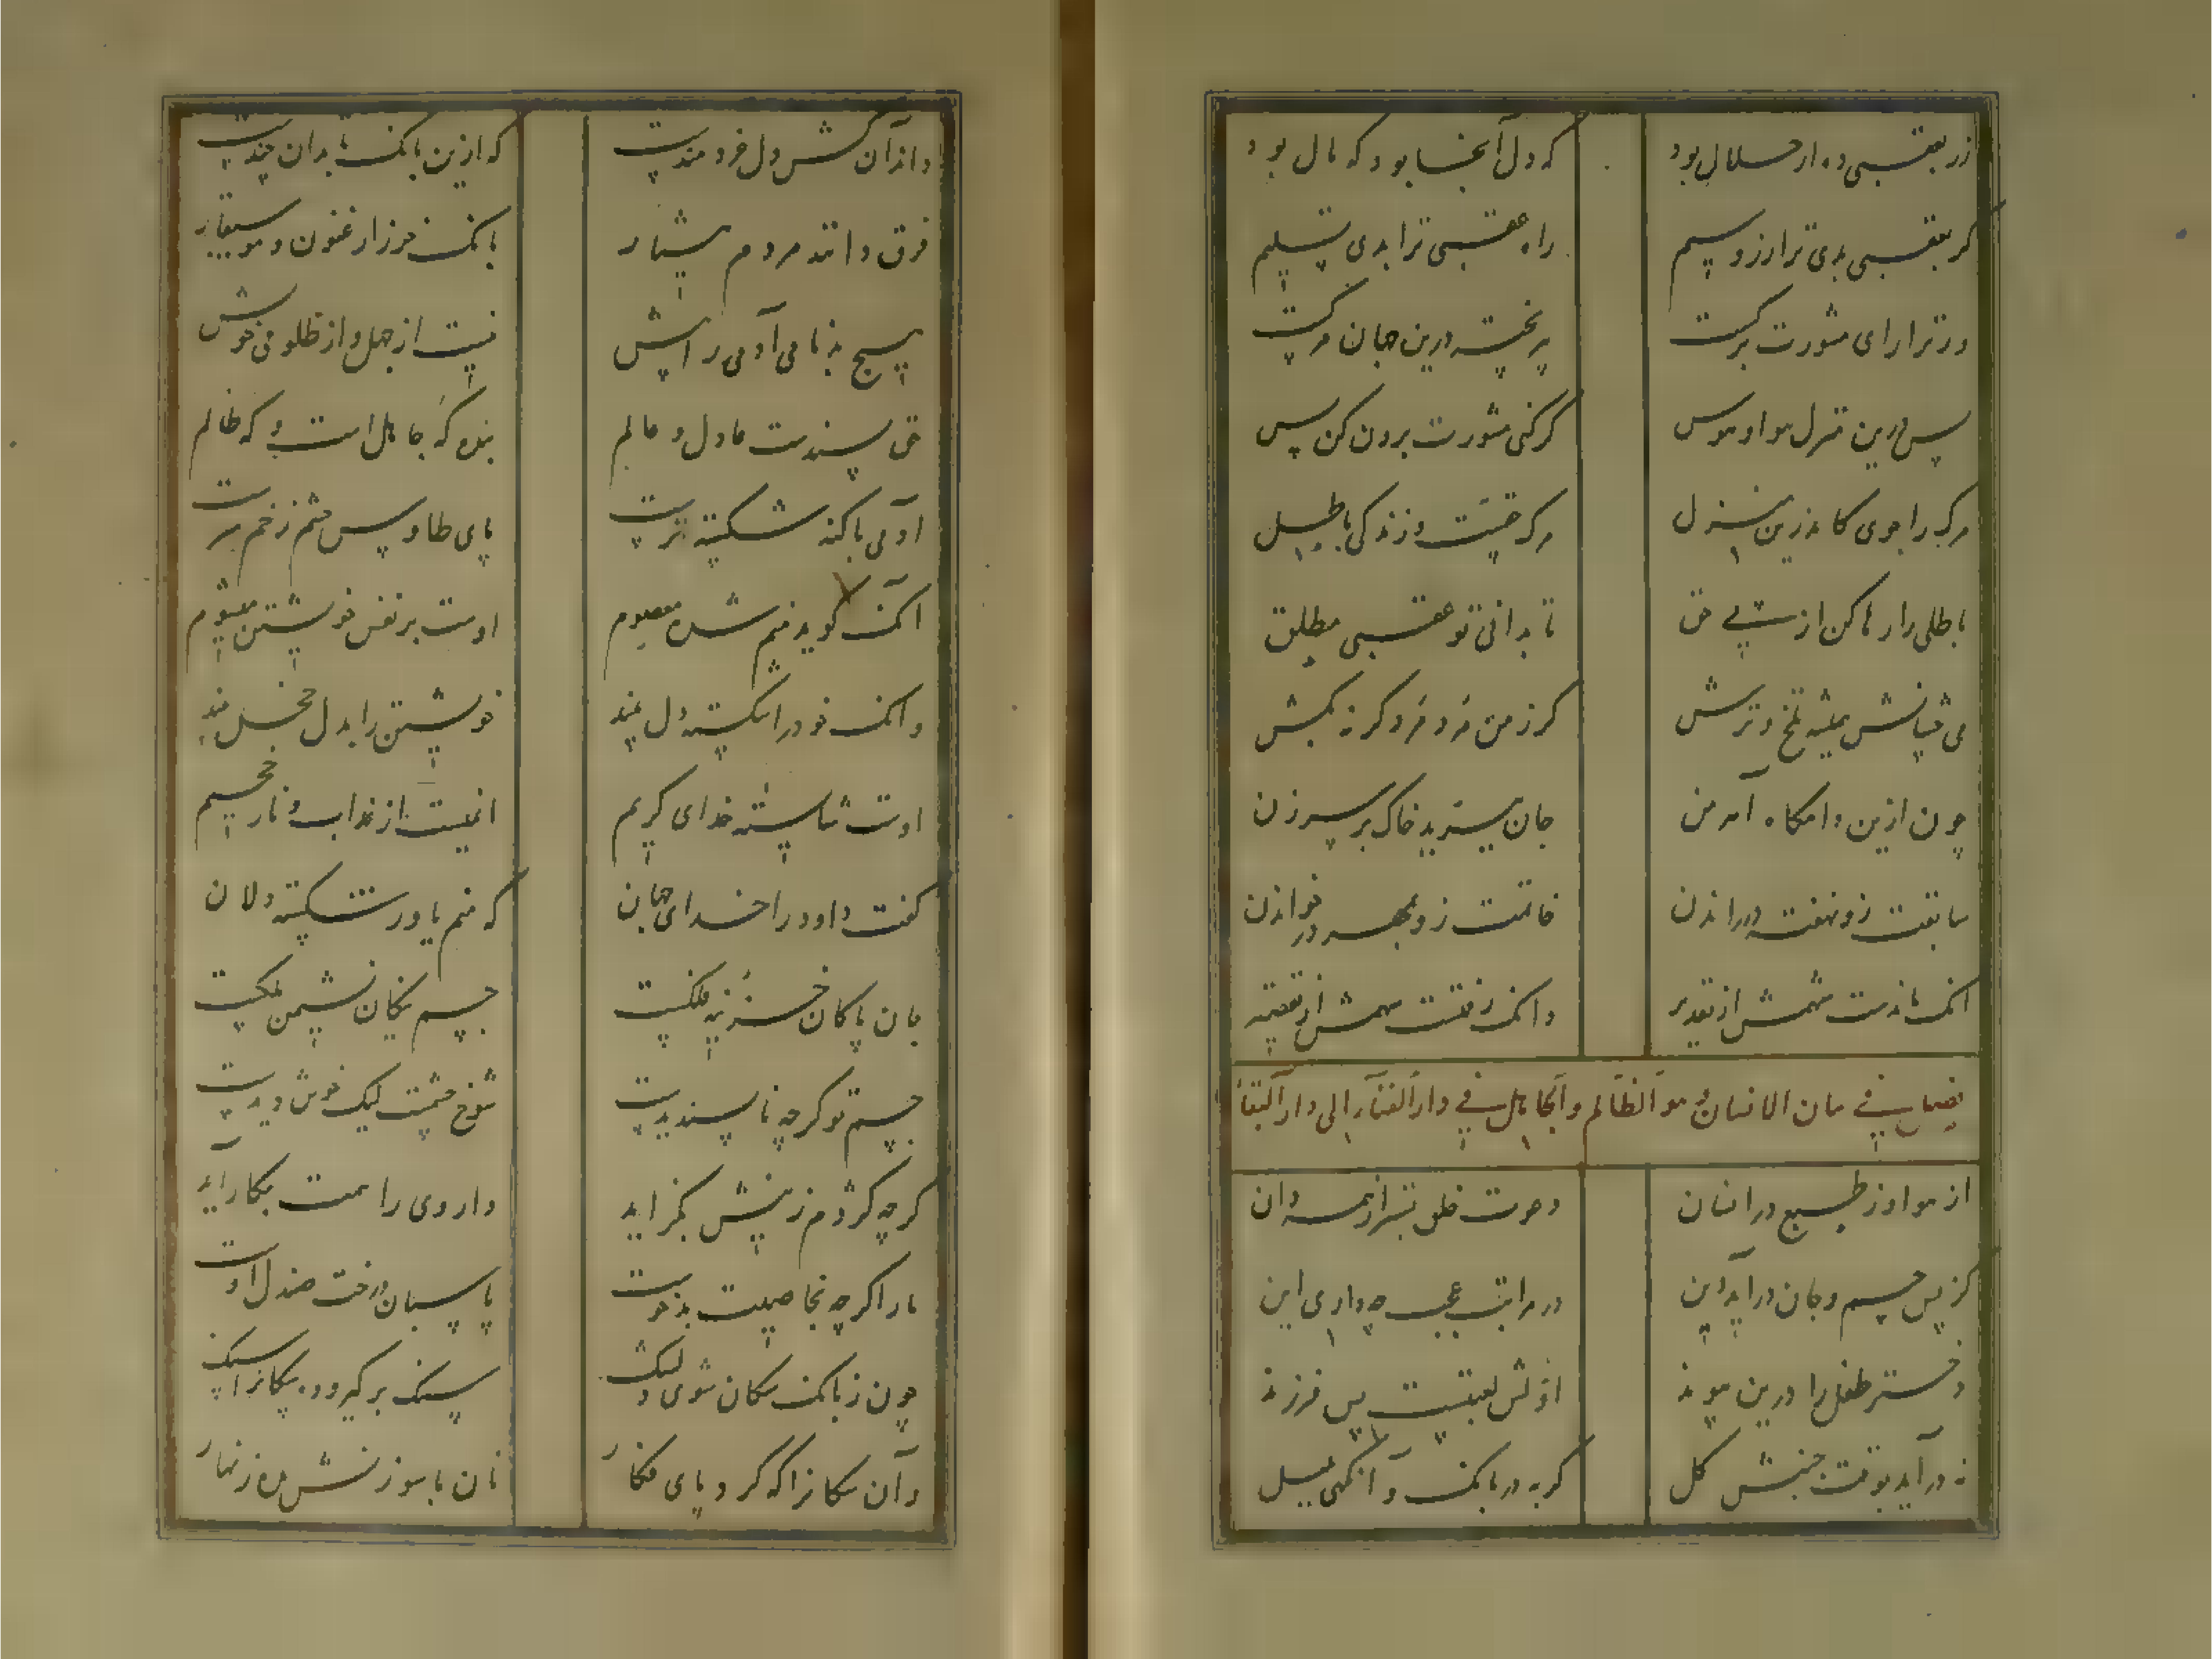 زر بعقبی ده ار حلال بود که دل آنجا بود که مال بود
گر بعقبی بدی ترا زر و سیم راه عقبی ترا بدی تسلیم
ور ترا رای مشورت بر کیست درین جهان مرکیست
پس درین منزل هوا و هوس گر کنی مشورت برون کن پس
مرک را جوی کاندرین منزل مرک حقست و زندگی باطل
باطلی را رها کن از پی حق تا بدانی تو عقبی مطلق
همیشه تلخ و ترش کرز من مرد مرد کرنه بکش
چون ازین دامگاه آمد من جان ستد خاک بر سر زدن
سابقت زو نهفت در راندن خاتمت زو بجهد در خواندن
آنک ماندست سهمش از تقدیر وانک رفتست سهمش از
فی بیان الانسان هو الظالم والجاهل فی دار الفناء الی دار البقاء
از هوا وز طبیع در انسان دعوت خلق بتر از همه دان
کز پس جسم و جان درآید دین در مراتب عجب چه داری این
دختر طفل را درین پیوند اولش لعبتست پس فرزند
نه درآید بوقت جنبش کل کربه در بانک وآنگهی بلبل
داند آن کش دل خردمندست که ازین بانک تا بدان چندست
فرق دانند مردم هشیار بانک خر زارغنون و موسیقار
هیچ بدنامی آدمی را پیش نیست از جهل و از ظلومی خویش
حق پسندست عادل و عالم بنده که جاهل است و که ظالم
آدمی با کنه شکسته ترست پای طاوس چشم زخم پرست
آنک گوید منم شده معصوم اوست بر نفس خویشتن میشوم
وانک خود را شکسته دل بیند خویشتن را بدل خجل بیند
اوست شایسته خدای کریم ایمنست از عذاب و نار جحیم
گفت داود را خدای جهان که منم یاور شکسته دلان
جان پاکان خزینه فلکست جسم نیکان نشیمن ملکست
جسم تو گرچه ناپسندیدست شوخ چشمست لیک خوش دیدست
گرچه کژدم ز نیش بگزاید داروی را همت بکار آید
مار اگرچه بخاصیت بدخوست پاسبان درخت صندل اوست
چون ز بانک سکان شوی دلتنک سنک بر گیر و ده سکانرا سنک
وآن سکانرا که کرد پای فکار نان با سوزنش مده زنهار